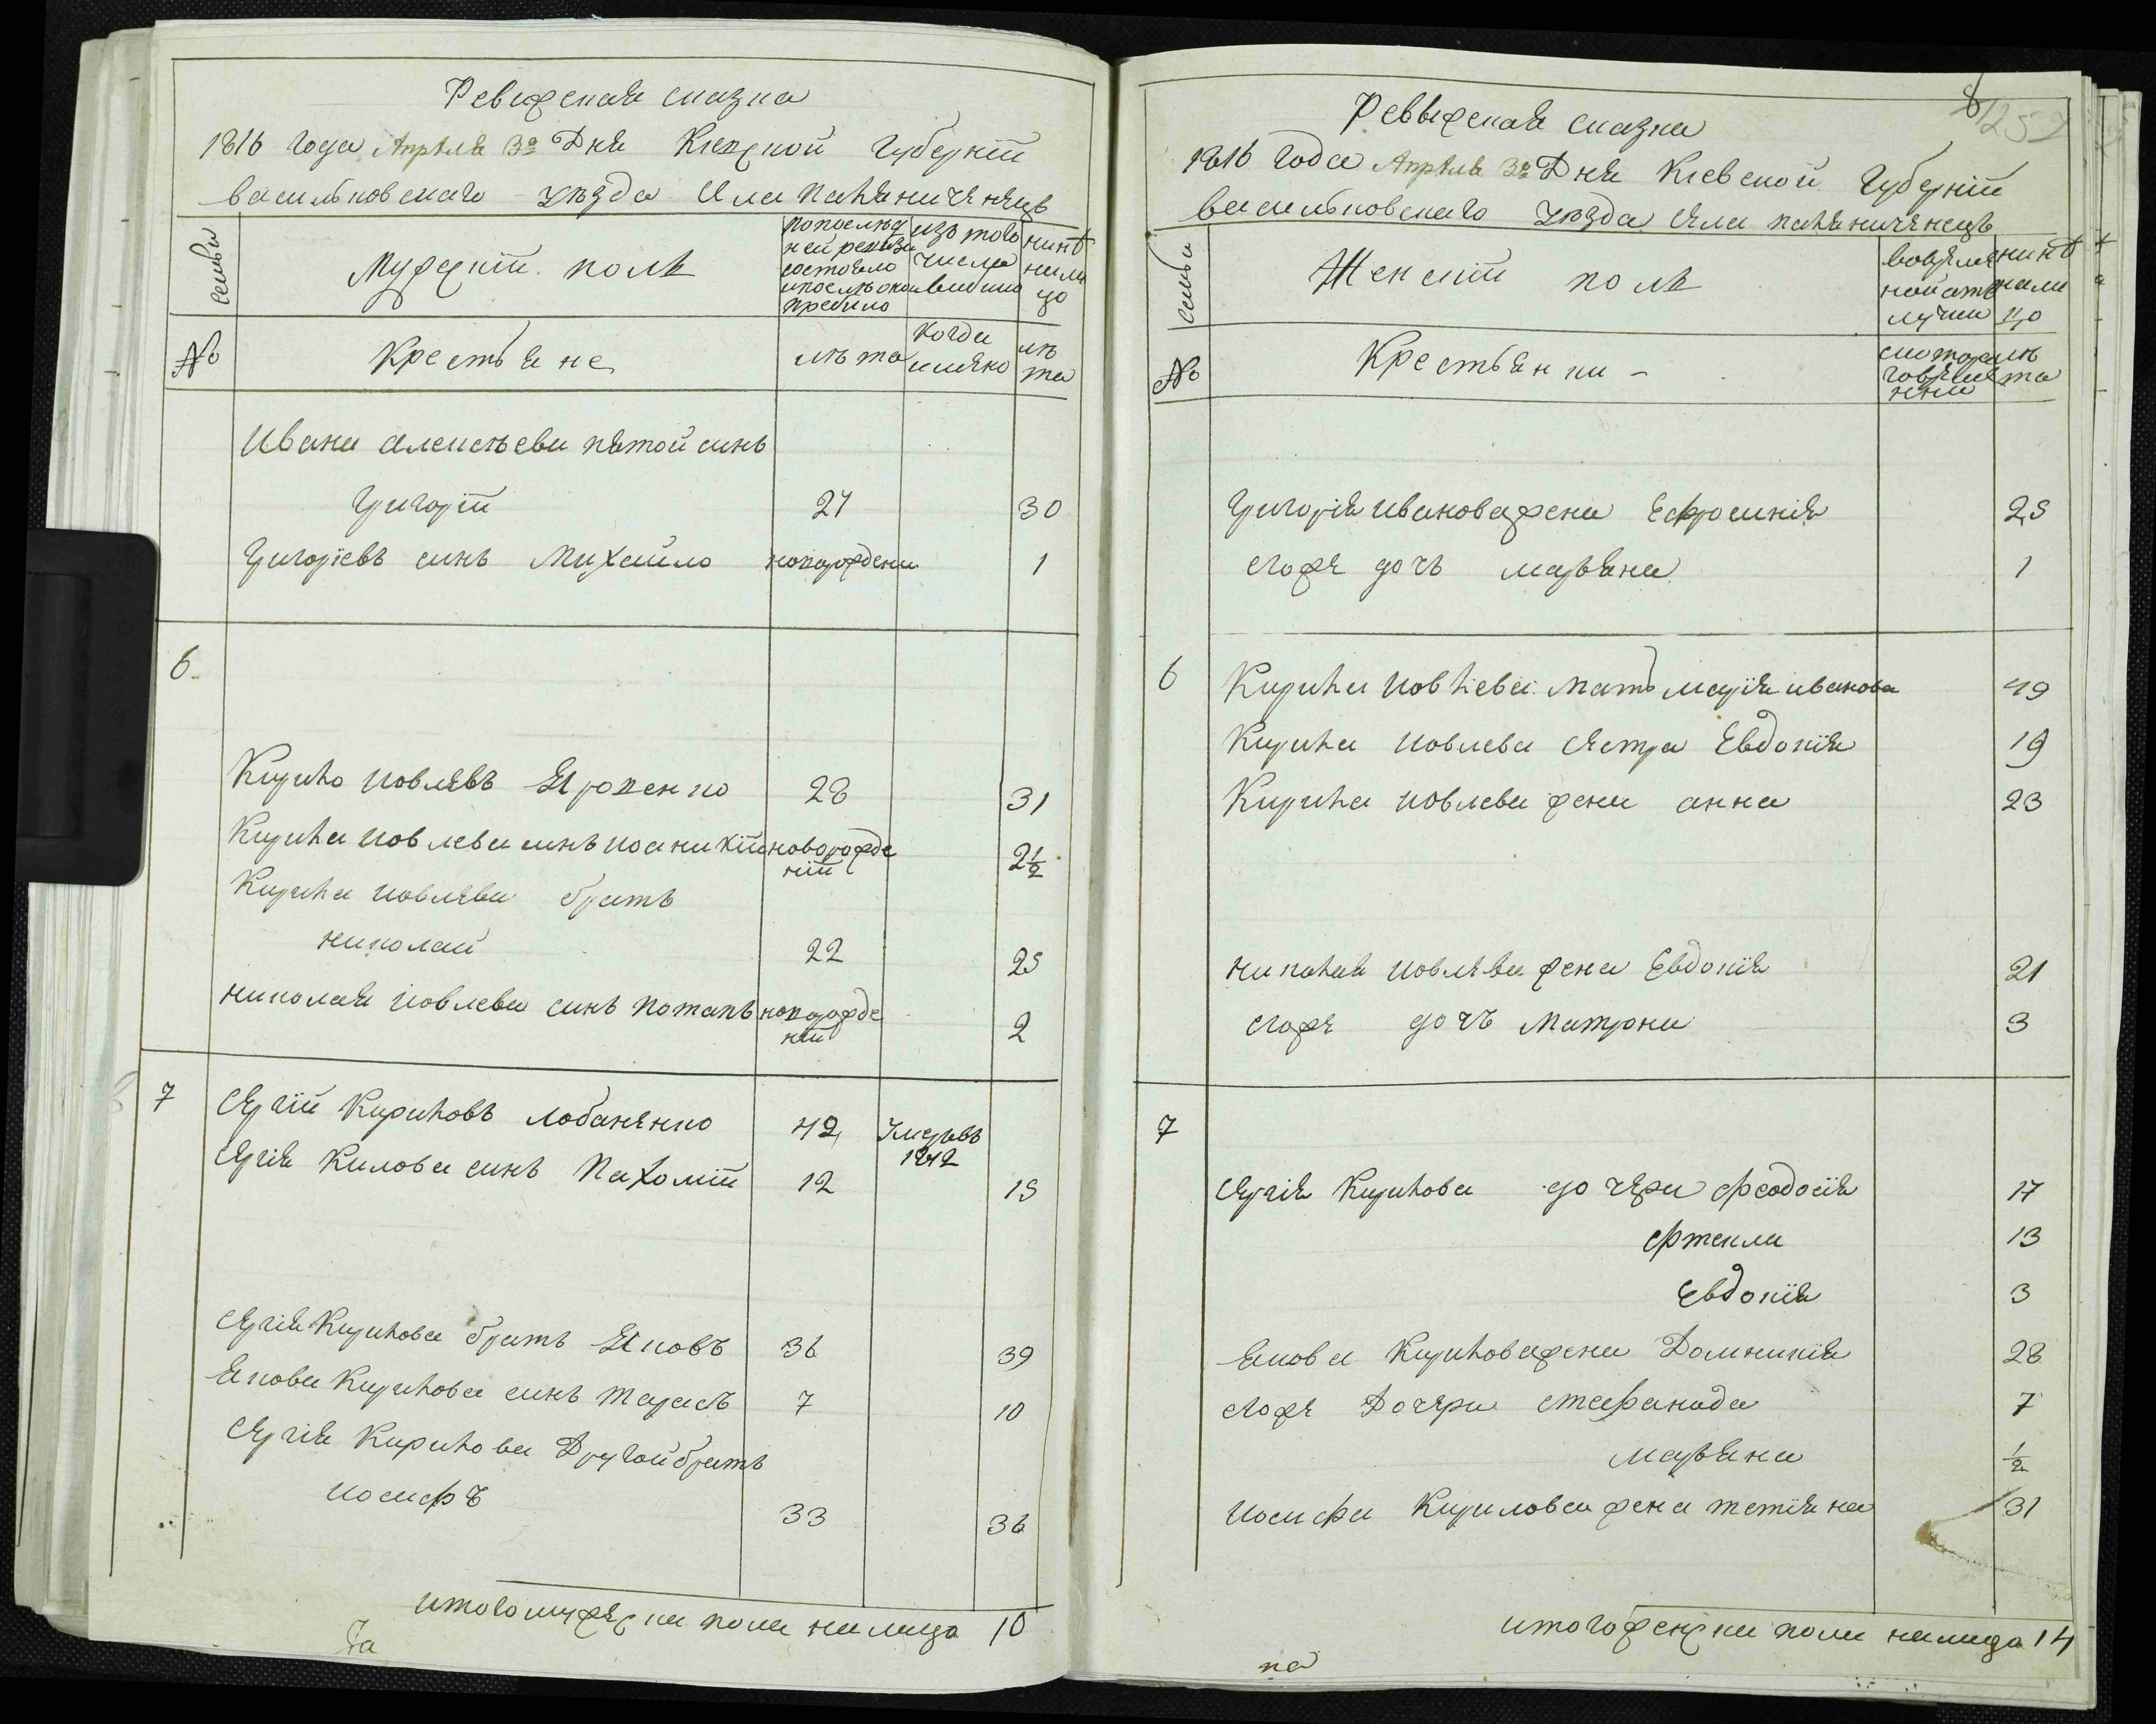 Ревизская сказка
1816 года Апреля 3го Дня Киевской Губернїи
васильковскаго уезда села паляниченецъ
семьи
Мужескїй полъ
по послед
ней ревизи
состояло
и после оной
прибыло
изъ того
числа
выбыло
ныне
нали
цо
№
Крестьяне
лета
когда
имянно
ле
та
Ивана алексеева пятой синъ
Григорїй 27 30
Григорїевъ синъ Михайло новорождени 1
6
Кирило иовлевъ Яроненко 28 31
Кирила иовлева синъ иоаникїй новорожде
нїй 2½
Кирила иовлева братъ
николай 22 25
николая иовлева синъ потапъ новорожде
нїй 2
7 Сергїй Кириловъ лобаненко 42 Умеръвъ
1812
Сергїя Килова синъ Пахомїй 12 15
Сергїя Кирилова братъ Яковъ 36 39
Якова Кирилова синъ тарасъ 7 10
Сергїя Кирилова Другой братъ
иосифъ 33 36
итого мужеска пола налицо 10
8
252
Ревызская сказка
1816 года Апреля 3го Дня Киевской Губернїи
васильковскаго уезда села паляниченецъ
семьи
Женскїй полъ
во время
ной отъ
лучки
ныне
нали
цо
№
Крестьянки
с котораго
времени
ле
та
Григорїя иванова жена Ефросинїя 25
єгоже дочъ маръяна 1
6 Кирила иовлева мать марїя иванова 49
Кирила иовлева сестра Евдокїя 19
Кирила иовлева жена анна 23
николая иовлева жена Евдокїя 21
єгоже дочъ матрона 3
7
Сергїя Кирилова дочери феодосїя 17
фтекла 13
Евдокїя 3
Якова Кирилова жена Домникїя 28
єгоже Дочери стефанида 7
маръяна ½
иосифа Кирилова жена тетїяна 31
итого женска пола налицо 14